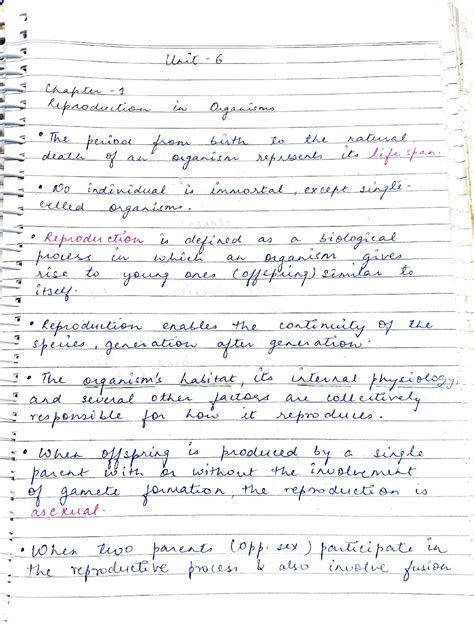 Unit - 6
Chapter - 1
Reproduction in Organisms
• The period from birth to the natural
death of an organism represents its life span.
• No individual is immortal, except single-
celled organism.
• Reproduction is defined as a biological
process in which an organism gives
rise to young ones (offspring) similar to
itself.
• Reproduction enables the continuity of the
species, generation after generation.
• The organism's habitat, its internal physiology,
and several other factors are collectively
responsible for how it reproduces.
• When offspring is produced by a single
parent with or without the involvement
of gamete formation, the reproduction is
asexual.
• When two parents (opp. sex) participate in
the reproductive process & also involve fusion